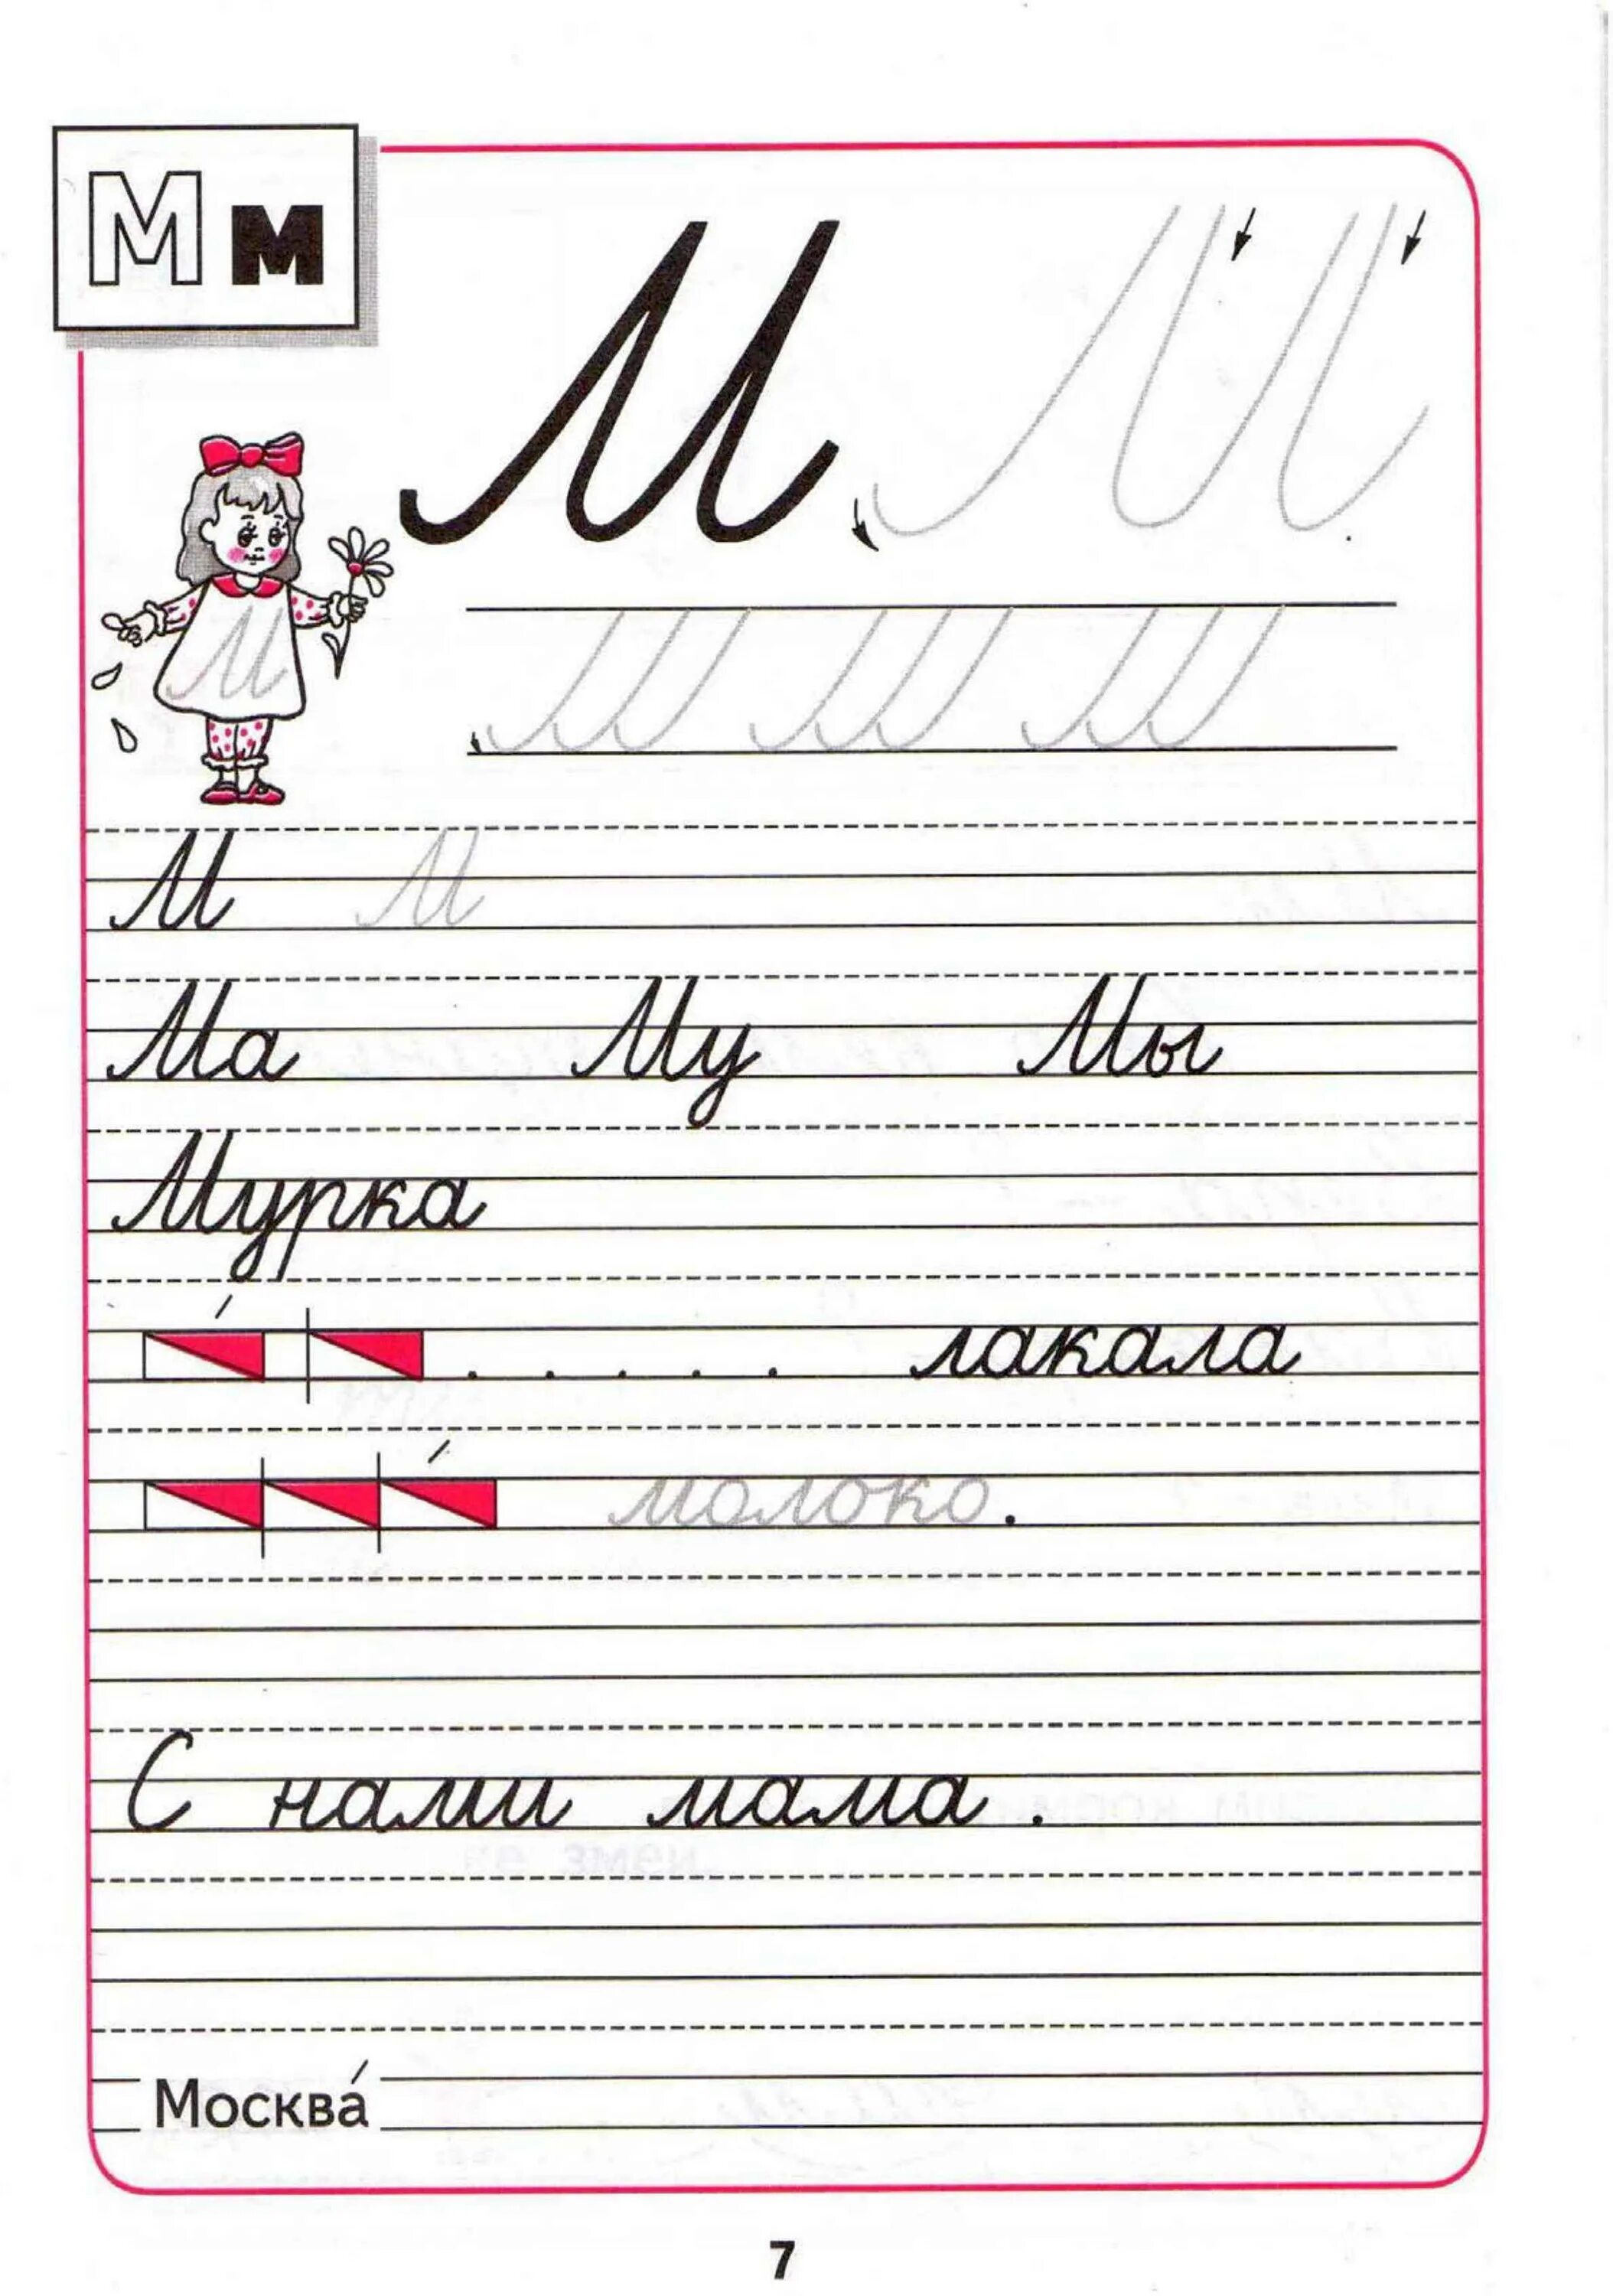 М м
М М
М
М М М
М М
Ма Му Мы
Мурка
лакала
молоко.
С нами мама.
Москва́
7